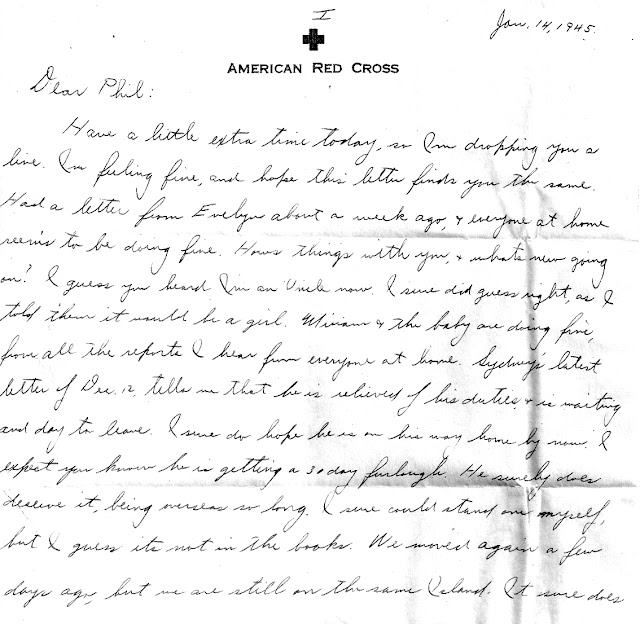 I
Jan. 14, 1945.
AMERICAN RED CROSS
Dear Phil:
Have a little extra time today, so I'm dropping you a
line. I'm feeling fine, and hope this letter finds you the same.
Had a letter from Evelyn about a week ago, & everyone at home
seems to be doing fine. Hows things with you, & whats new going
on? I guess you heard I'm an Uncle now. I sure did guess right, as I
told them it would be a girl. Miriam & the baby are doing fine,
from all the reports I hear from everyone at home. Sydney's latest
letter of Dec. 12, tells me that he is relieved of his duties, & is waiting
and day to leave. I sure do hope he is on his way home by now. I
expect you know he is getting a 30 day furlough. He surely does
deserve it, being overseas so long. I sure could stand one myself,
but I guess its not in the books. We moved again a few
days ago, but we are still on the same Island. It sure does